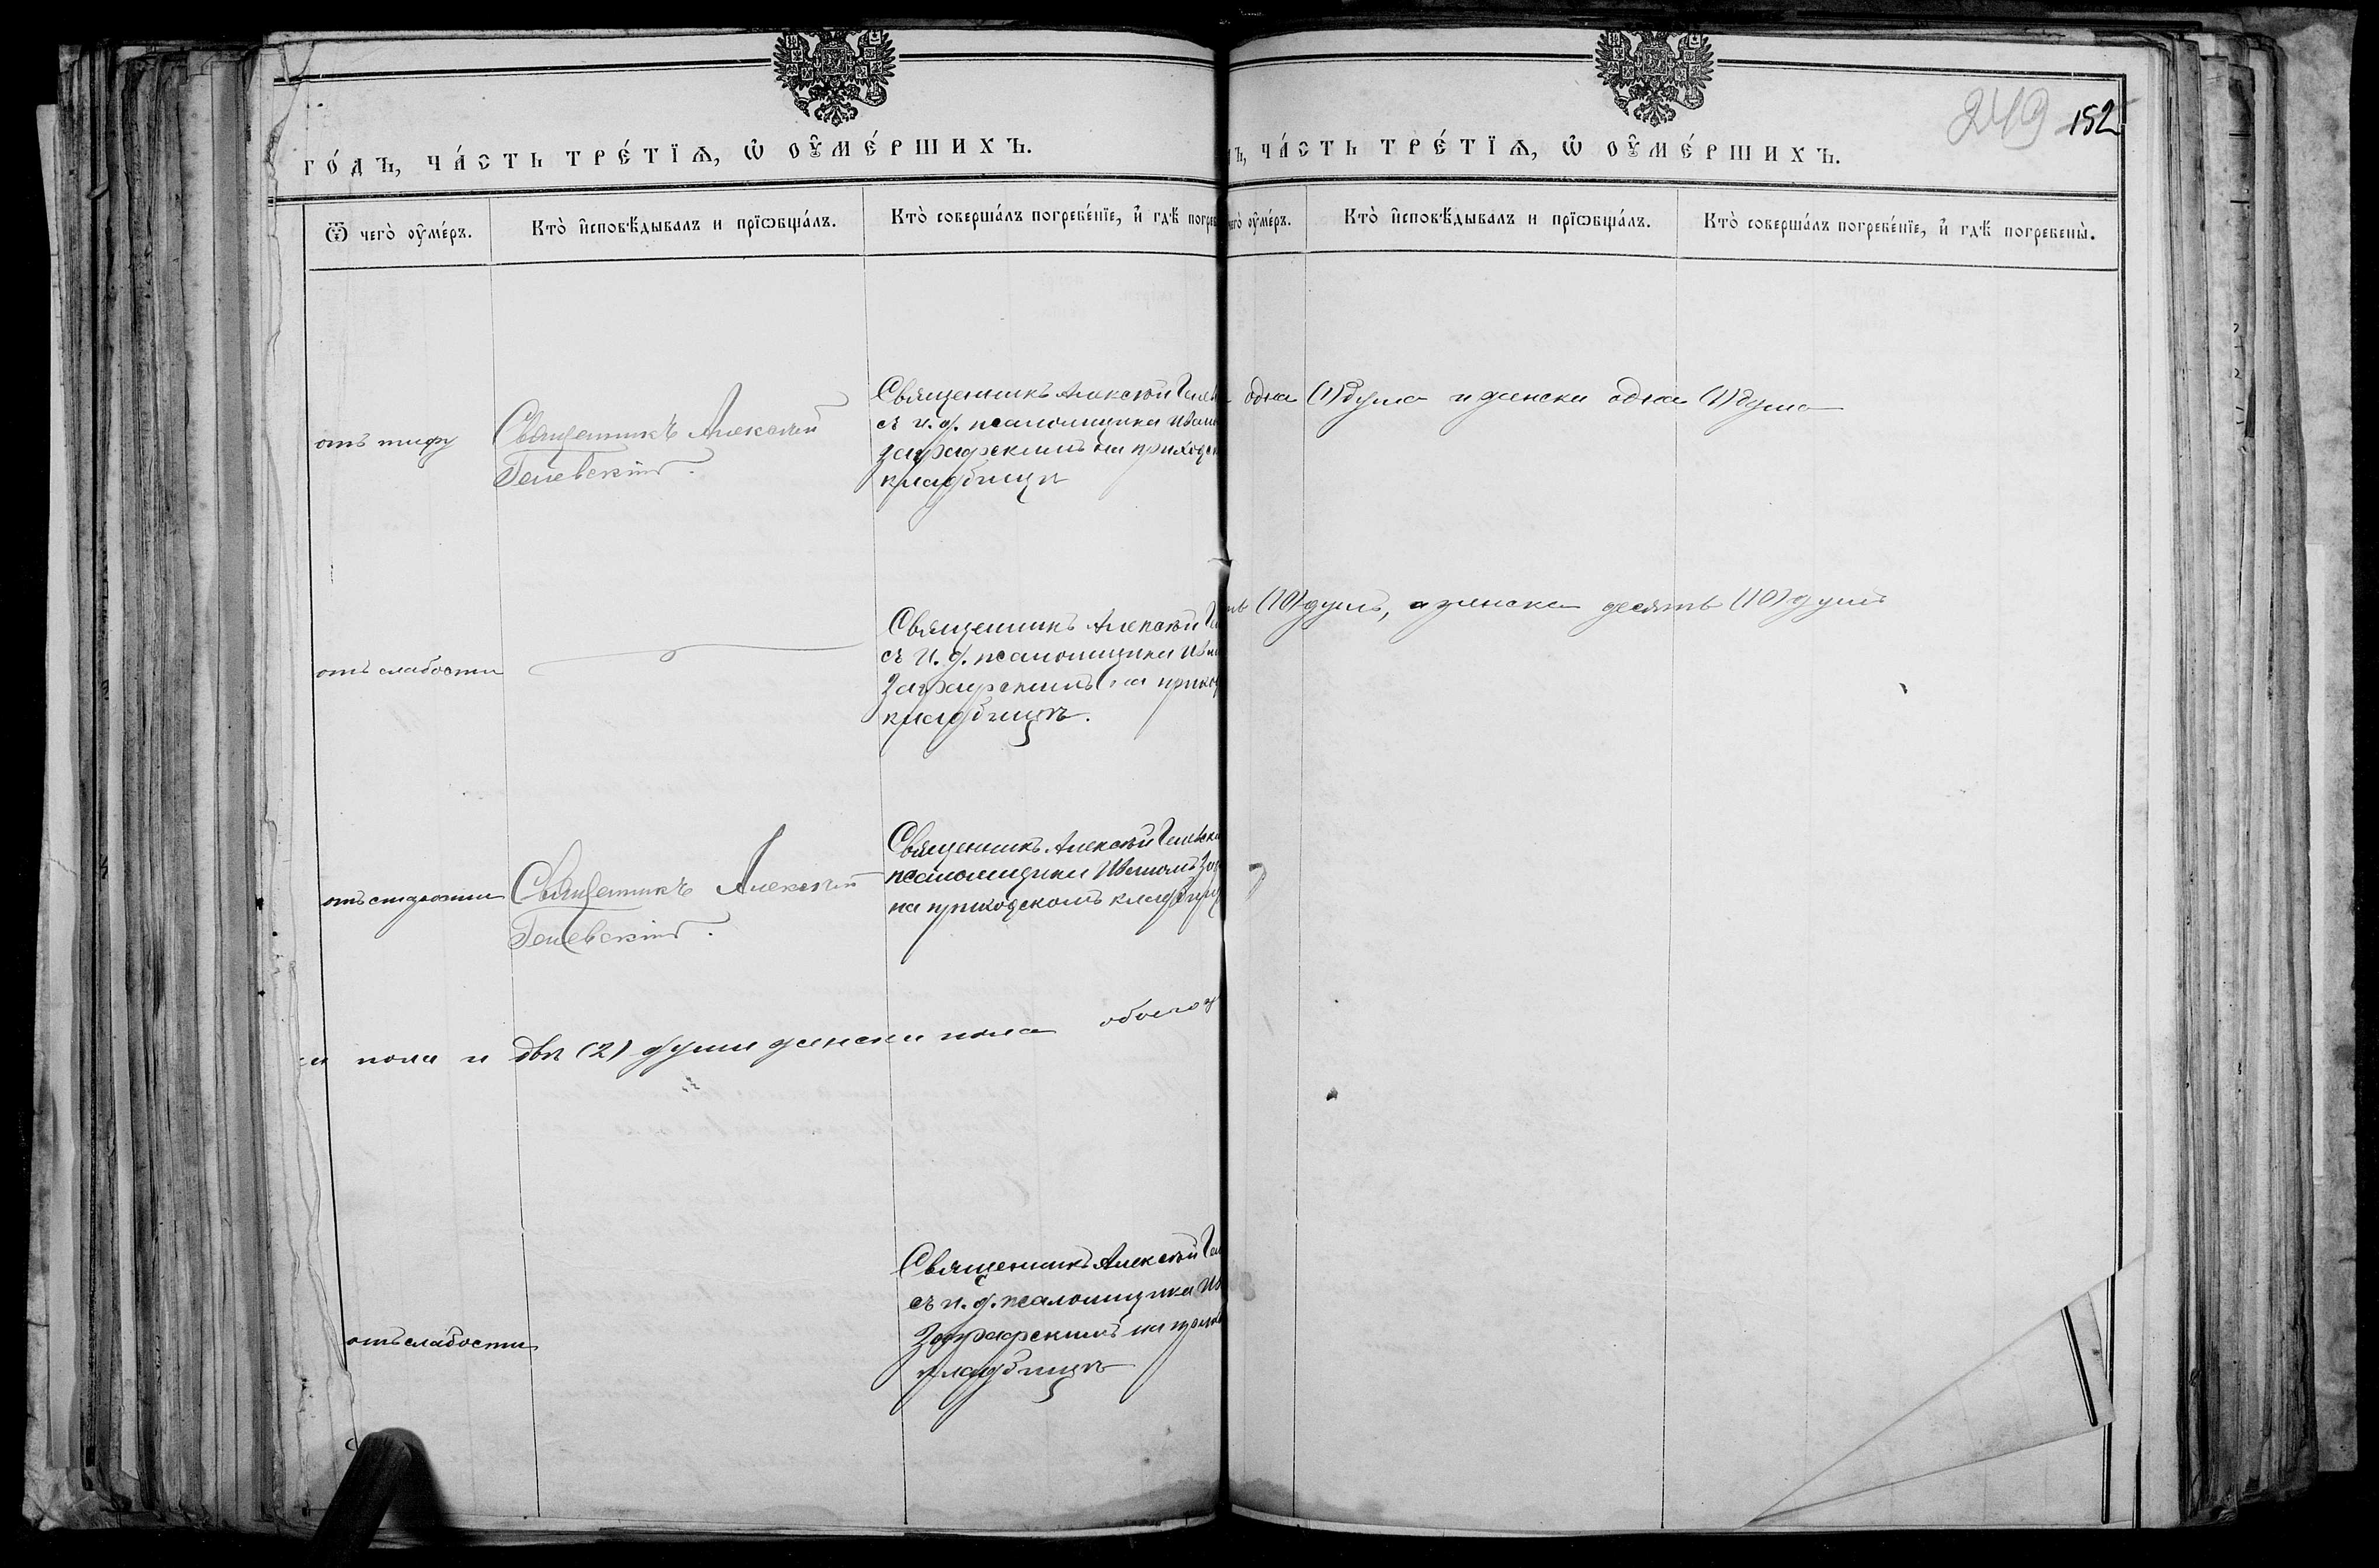 го́дъ, ча́сть тре́тїѧ, ѡ҆ оу҆ме́ршихъ.
Ѿ чегѡ̀ оу҆ме́ръ.
Кто̀ и҆сповѣ́дывалъ и прїѡбща́лъ.
Кто̀ соверша́лъ погребе́нїе, и҆ гдѣ̀ погреб
отъ тифу
Священникъ Алексѣй
Гелевскій.
Священникъ Алексѣй
съ и. д. псаломщика
на приход
кладбищѣ
отъ слабости
Священникъ Алексѣй
съ и. д. псаломщика
кладбищѣ.
отъ старости
Священникъ Алексѣй
Гелевскій.
Священникъ Алексѣй
псаломщика Иваномъ
на приходскомъ кладбищ
пола и двѣ (2) души женска пола обоего
отъ слабости
Священникъ Алексѣй
съ и. д. псаломщика
кладбищѣ
ча́сть тре́тїѧ, ѡ҆ оу҆ме́ршихъ.
249 152
оу҆ме́ръ.
Кто̀ и҆сповѣ́дывалъ и прїѡбща́лъ.
Кто̀ соверша́лъ погребе́нїе, и҆ гдѣ̀ погребены̀.
одна (1) душа и женска одна (1) душа
(10) душъ, а женска десять (10) душъ